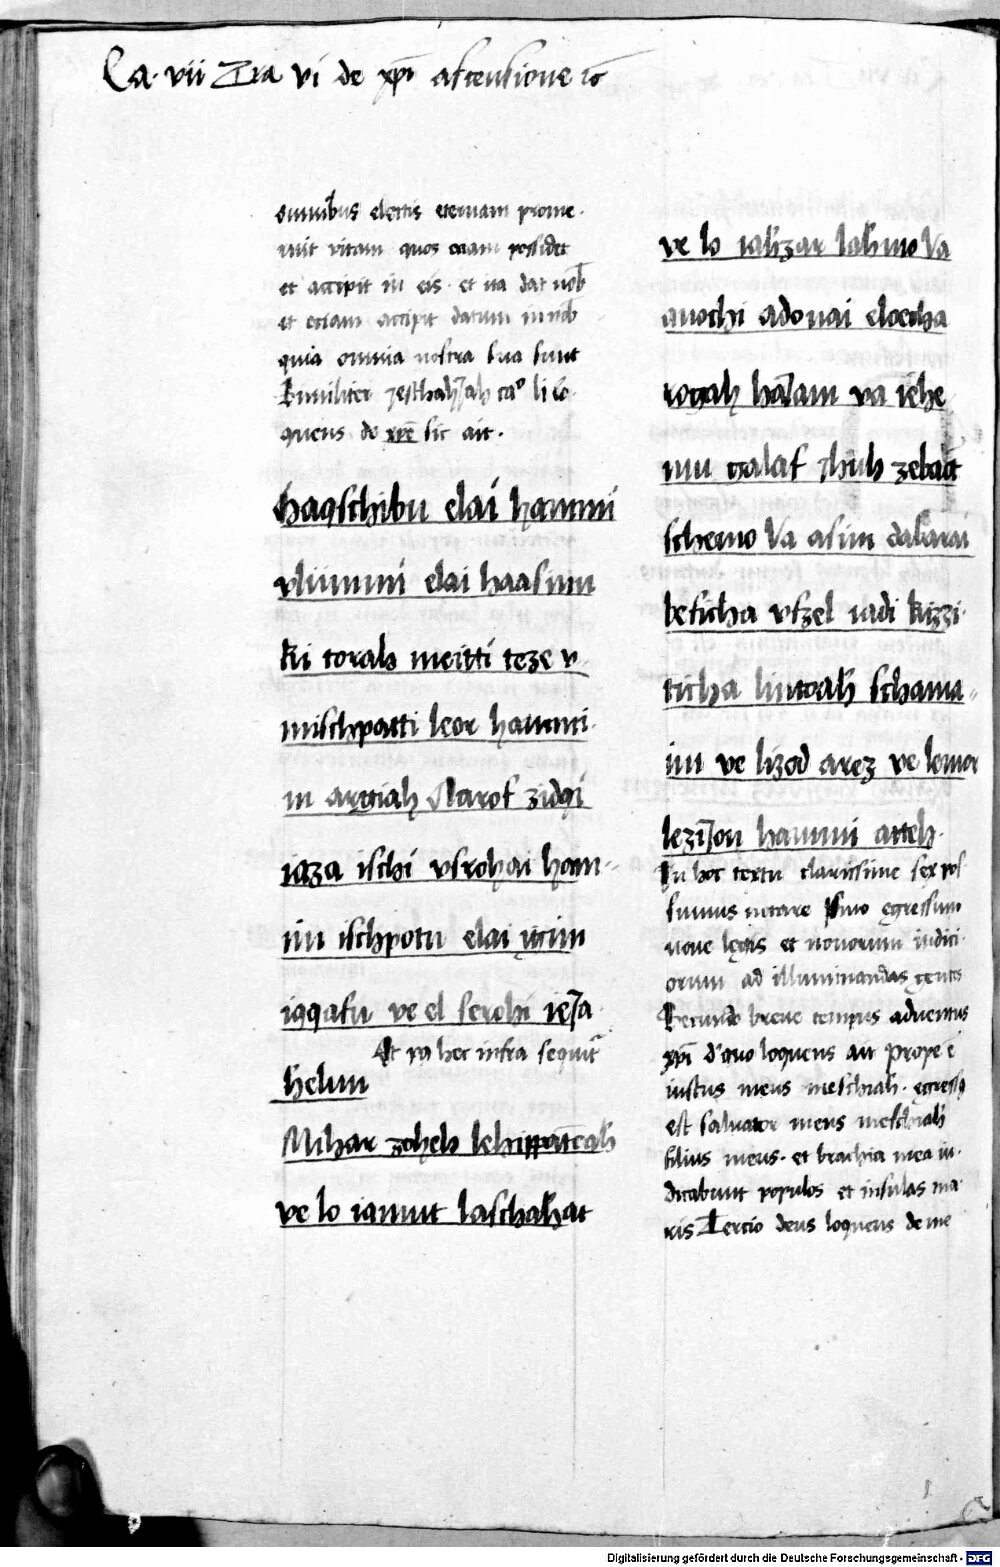 Ca. vii Tra vi de xpi ascensione
omnibus electis eternam prome.
ruit vitam quos etiam possidet
et accipit in eis. et ita dat nob
et etiam accipit datum in nob
quia omnia nostra sua sunt
Similiter Jeschahiah ca° li lo-
quens de xpe sic ait.
haqschibu elai hammi
vliummi elai haasinu
ki torah meitti teze v-
mischpatti leor hammi.
in argiah Karof zidqi
iaza ischi vsrohai ham-
im ischpotu elai iiim
iqqafu ve el serohi ieia
Et pa hec infra sequit
helun
Mihar zoheh lehippateah
ve lo iamut laschahat
ve lo iahzar lahmo Va
anochi adonai eloecha
rogah haiam va iehe
mu galaf schuh zebaot
schemo Va asim dabarai
beficha vfzel iadi kizzi.
ticha lintoah schama-
im ve lizod arez ve lemor
lezion hammi atteh.
In hoc textu clarissime sex pos
sumus notare primo egressum
nove legis et novorum iudici
orum ad illuminandas gentes
Secundo breve tempus adventus
xpi d quo loquens ait prope e
iustus meus meschiah. egressus
est salvator meus meschiah
filius meus. et brachia mea iu-
dicabunt populos et insulas ma
ris Tercio deus loquens de me
Digitalisierung gefördert durch die Deutsche Forschungsgemeinschaft - DFG